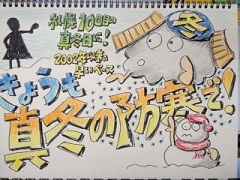 札幌10日連続の
真冬日から!
2002年以来の
辛いペース
冬
きょうも
真冬の防寒で!